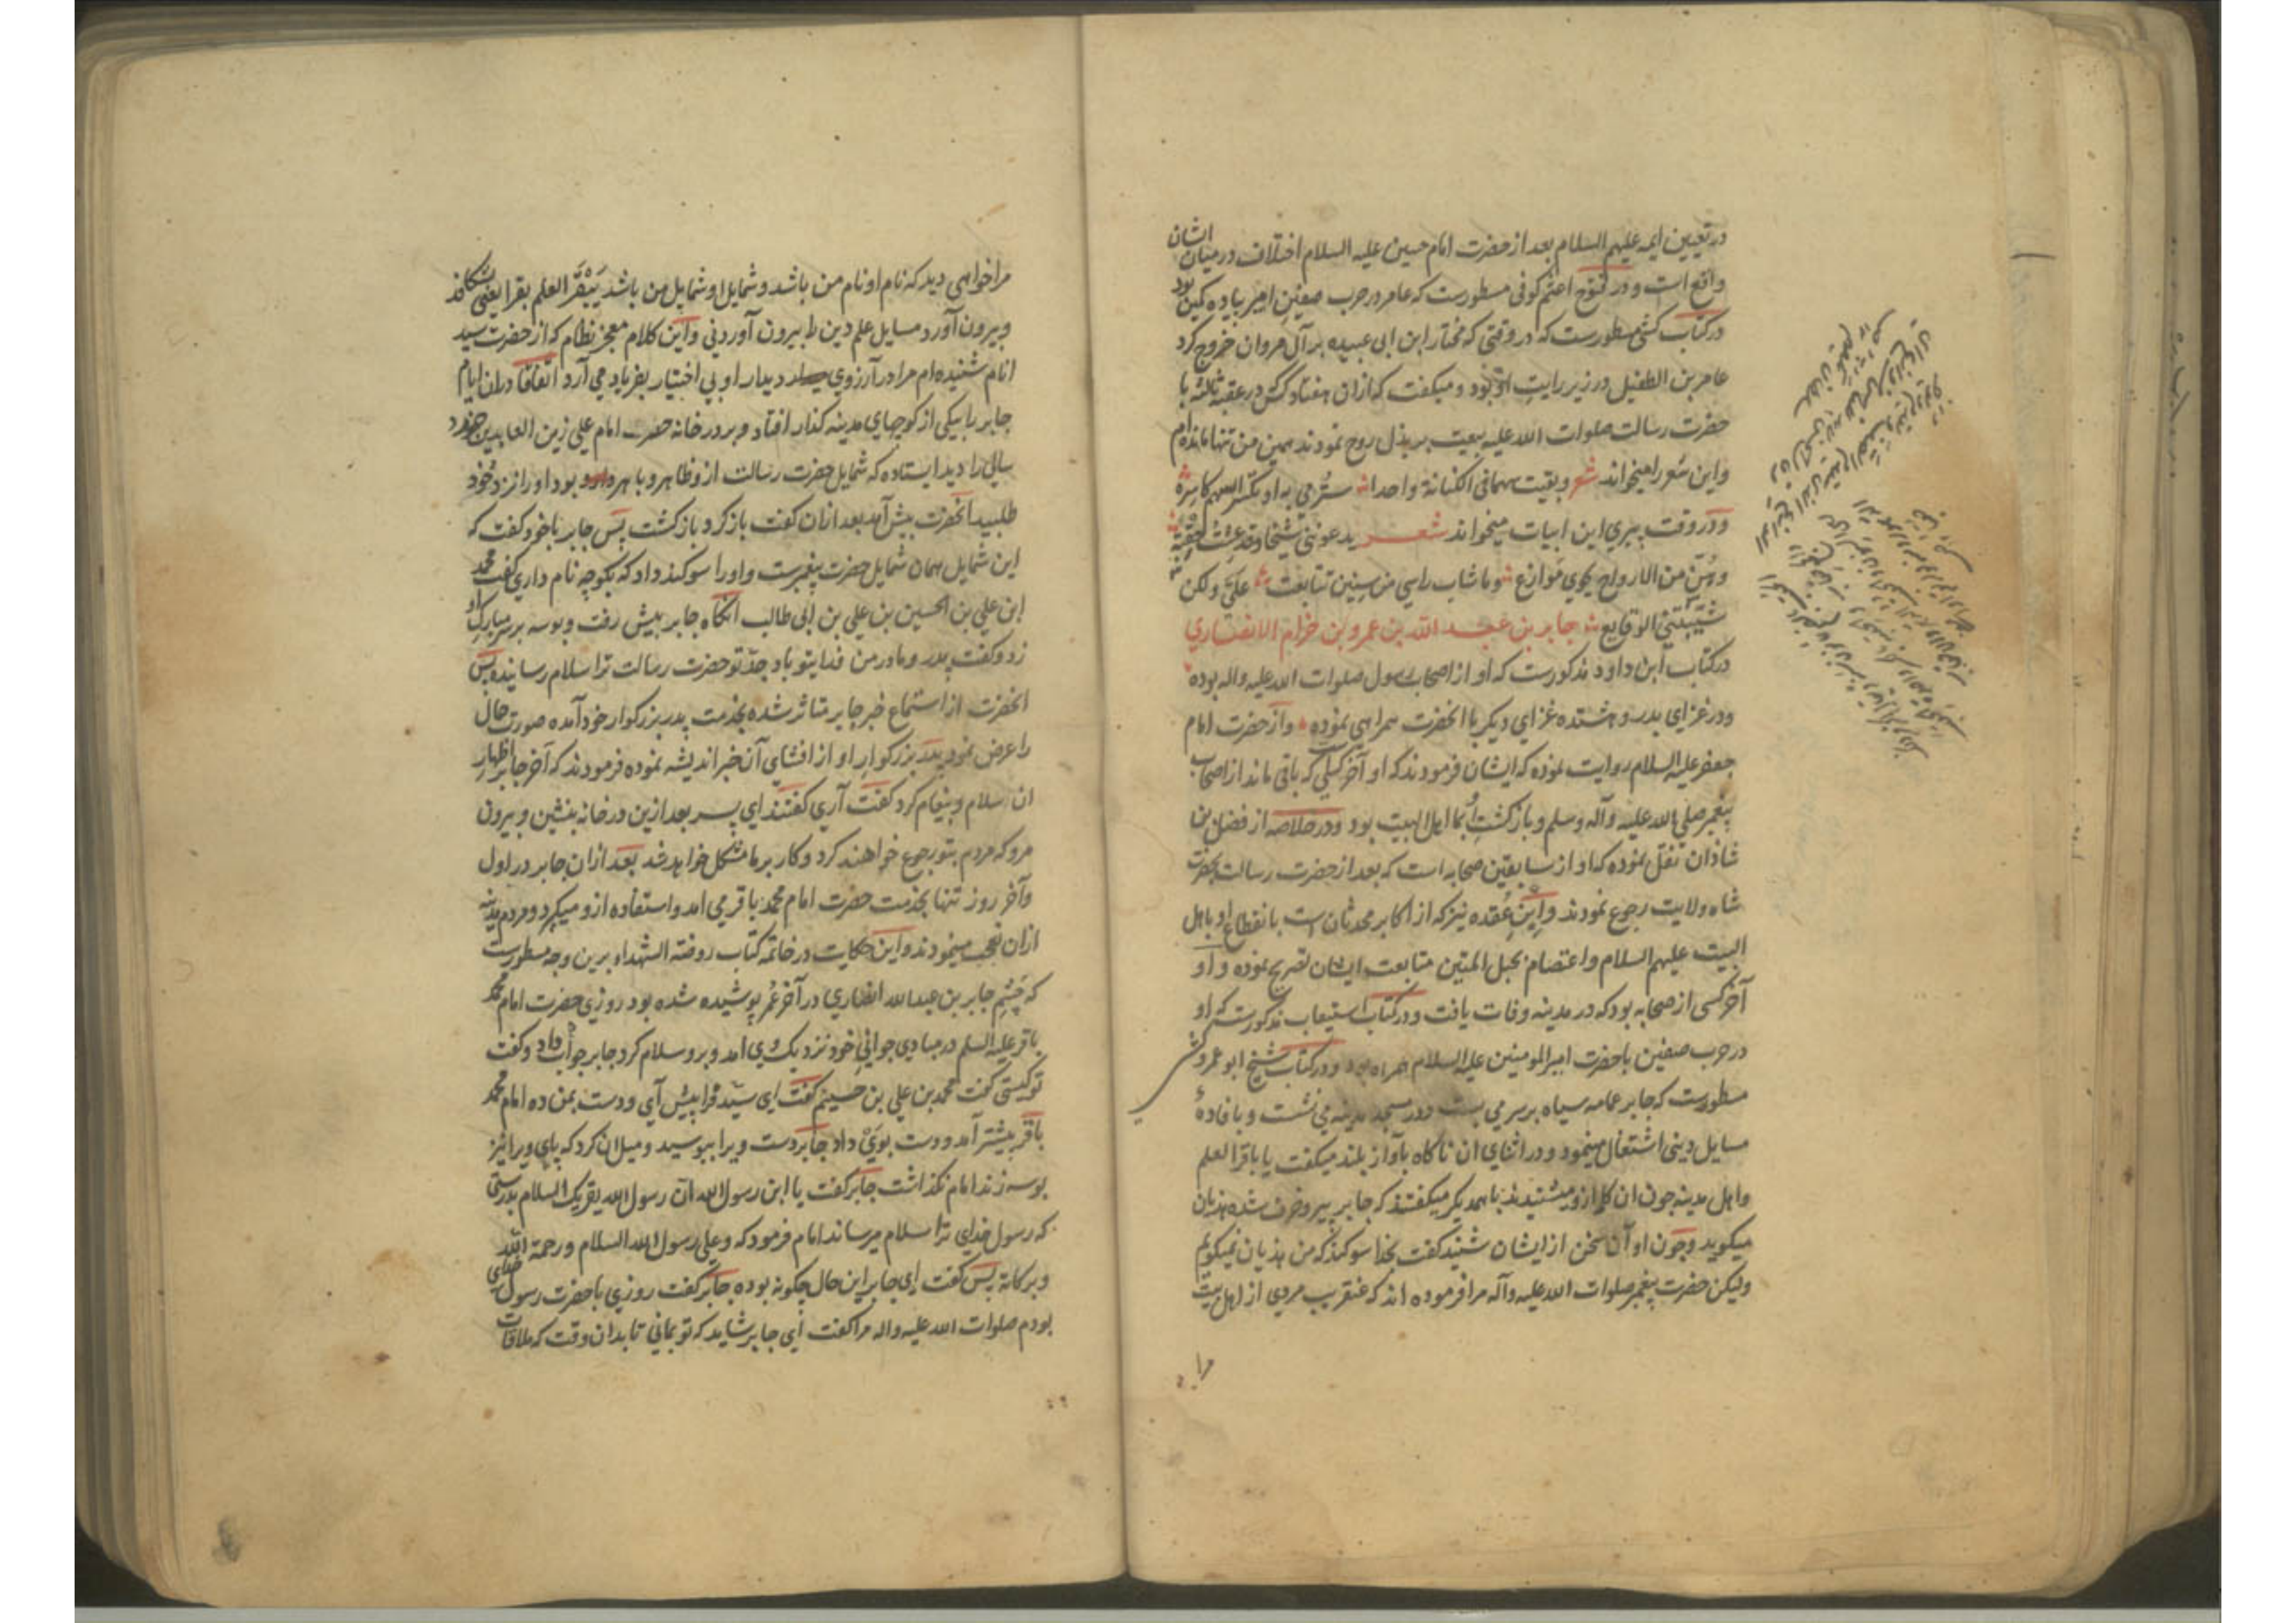 در تعیین ایمه علیهم السلام بعد از حضرت امام حسین علیه السلام اختلاف در میان ایشان
واقع است و در فتوح اعثم کوفی مسطورست که عامر در حرب صفین امیر پیاده کین بود
در کتاب کشی مسطورست که در وقتی که مختار ابن ابی عبیده بر آل مروان خروج کرد
عامر بن الطفیل در زیر رایت او بود و میکفت که از ان هفتاد کس در عقبه ثالثه با
حضرت رسالت صلوات الله علیه بیعت بر بذل روح نمودند همین من تنها مانده ام
واین شعر را میخواند شعر وبقیت سهما فی الکنانة واحدا سترمی به او تکسر السهم کاسره
و در وقت پیری این ابیات میخواند شعر یدعوننی شیخا وقد عشت حقبة
وهن من الازواج نحوی نوازع وما شاب راسی من سنین تتابعت علی ولکن
شیبتنی الوقایع جابر بن عبد الله بن عمرو بن خزام الانصاری
در کتاب ابن داود مذکورست که او از اصحاب رسول صلوات الله علیه واله بوده
ودر غزای بدر و هشتده غزای دیکر با انحضرت همراهی نموده واز حضرت امام
جعفر علیه السلام روایت نموده که ایشان فرمودند که او آخر کسی که باقی ماند از اصحاب
پیغمبر صلی الله علیه وآله وسلم و بازکشت او بما اهل البیت بود ودر خلاصه از فضل بن
شاذان نقل نموده که او از سابقین صحابه است که بعد از حضرت رسالت بحضرت
شاه ولایت رجوع نمودند وابن عقده نیز که از اکابر محدثان است بانقطاع او باهل
البیت علیهم السلام واعتصام بحبل المتین متابعت ایشان تصریح نموده و او
آخر کسی از صحابه بود که در مدینه وفات یافت ودر کتاب استیعاب مذکورست که او
در حرب صفین با حضرت امیر المومنین علیه السلام همراه بود ودر کتاب شیخ ابو عمرو کشی
مسطورست که جابر عمامه سیاه بر سر می بست ودر مسجد مدینه می نشست و بافاده
مسایل دینی اشتغال مینمود ودر اثنای ان ناکاه بآواز بلند میکفت یا باقر العلم
واهل مدینه چون ان کلام ازو میشنیدند با همدیکر میکفتند که جابر پیر و خرف شده هذیان
میکوید وچون او آن سخن از ایشان شنید کفت بخدا سوکند که من هذیان نمیکویم
ولیکن حضرت پیغمبر صلوات الله علیه وآله مرا فرموده اند که عنقریب مردی از اهل بیت
مرا
مرا خواهی دید که نام او نام من باشد وشمایل او شمایل من باشد یبقر العلم بقرا یعنی بشکافد
وبیرون آورد مسایل علم دین را بیرون آوردنی واین کلام معجز نظام که از حضرت سید
انام شنیده ام مرا در آرزوی دیدار او بی اختیار بفریاد می آرد اتفاقا در ان ایام
جابر را بیکی از کوچهای مدینه کذار افتاد وبر در خانه حضرت امام علی زین العابدین خورد
سالی را دید ایستاده که شمایل حضرت رسالت ازو ظاهر و باهر بود اورا نزد خود
طلبید انحضرت پیش آمد بعد ازان کفت بازکرد بازکشت پس جابر با خود کفت که
این شمایل همان شمایل حضرت پیغمبرست واورا سوکند داد که بکو چه نام داری کفت محمد
ابن علی بن الحسین بن علی بن ابی طالب انکاه جابر پیش رفت و بوسه بر سر مبارک او
زد وکفت پدر ومادر من فدای تو باد جد تو حضرت رسالت ترا سلام رسانیده پس
انحضرت از استماع خبر جابر متاثر شده بخدمت پدر بزرکوار خود آمده صورت حال
را عرض نمود پدر بزرکوار او از افشای آن خبر اندیشه نموده فرمودند که آخر جابر اظهار
ان سلام و پیغام کرد کفت آری کفتند ای پسر بعد ازین در خانه بنشین و بیرون
مرو که مردم بتو رجوع خواهند کرد وکار بر ما مشکل خواهد شد بعد ازان جابر در اول
وآخر روز تنها بخدمت حضرت امام محمد باقر می امد واستفاده ازو میکرد ومردم مدینه
ازان تعجب مینمودند واین حکایت در خاتمه کتاب روضة الشهداء برین وجه مسطورست
که چشم جابر بن عبد الله انصاری در آخر عمر پوشیده شده بود روزی حضرت امام محمد
باقر علیه السلم در مبادی جوانی خود نزدیک وی امد وبرو سلام کرد جابر جواب داد وکفت
تو کیستی کفت محمد بن علی بن حسینم کفت ای سید فرا پیش آی ودست بمن ده امام محمد
باقر پیشتر آمد ودست بوی داد جابر دست ویرا ببوسید ومیل ان کرد که پای ویرا نیز
بوسه زند امام نکذاشت جابر کفت یا ابن رسول الله ان رسول الله یقریک السلام بدرستی
که رسول خدای ترا سلام میرساند امام فرمود که وعلی رسول الله السلام ورحمة الله
وبرکاته پس کفت ای جابر این حال چکونه بوده جابر کفت روزی با حضرت رسول خدای
بودم صلوات الله علیه واله مرا کفت ای جابر شاید که تو بمانی تا بدان وقت که ملاقات